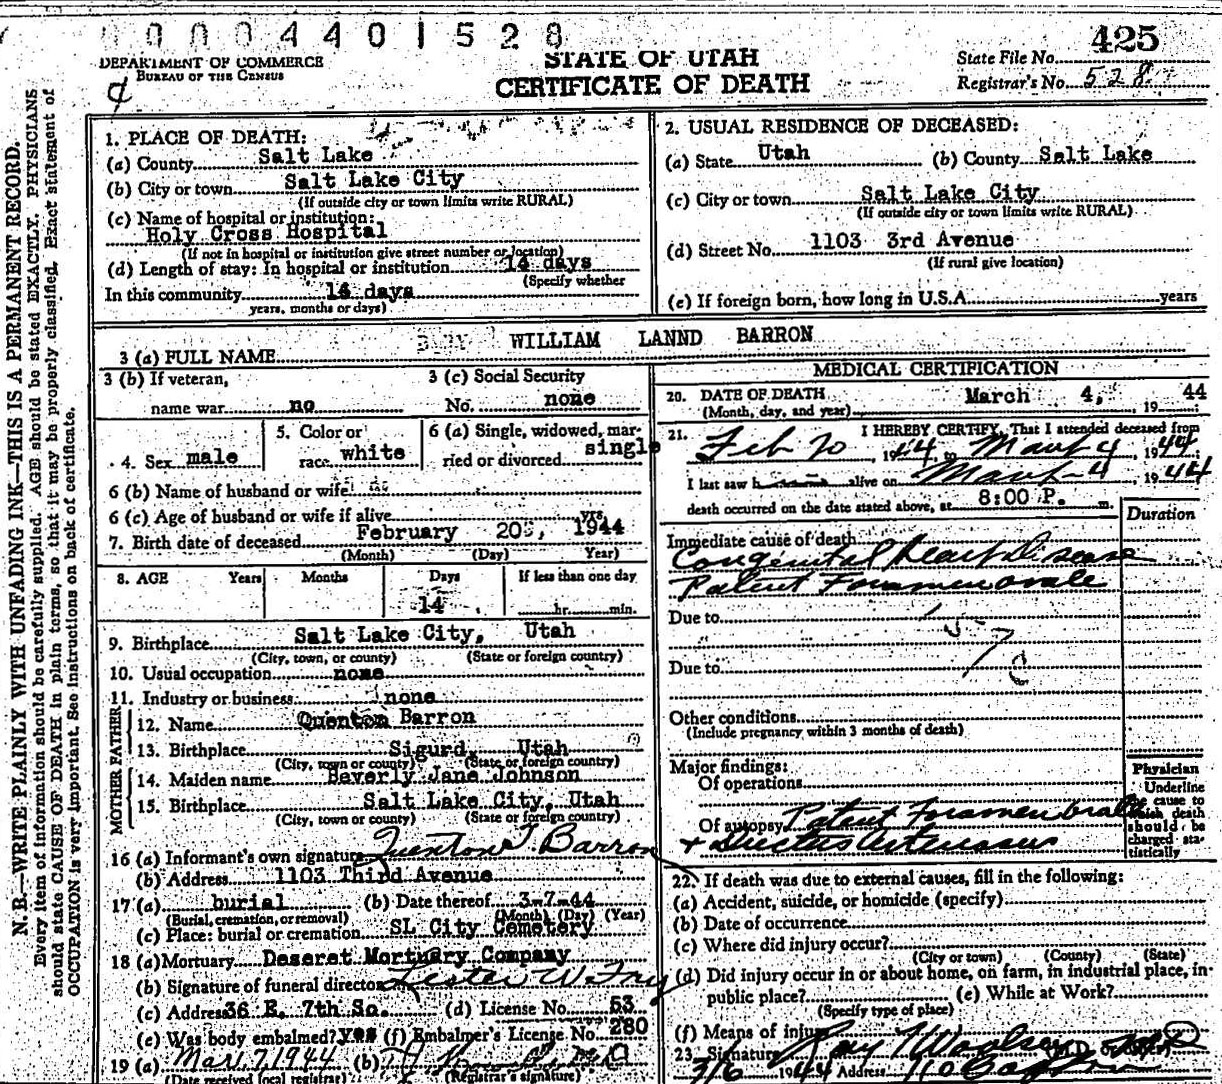 00004401528
DEPARTMENT OF COMMERCE
BUREAU OF THE CENSUS
STATE OF UTAH
CERTIFICATE OF DEATH
425
State File No.
Registrar's No. 528
N. B.—WRITE PLAINLY WITH UNFADING INK—THIS IS A PERMANENT RECORD.
Every item of information should be carefully supplied. AGE should be stated EXACTLY. PHYSICIANS
should state CAUSE OF DEATH in plain terms, so that it may be properly classified. Exact statement of
OCCUPATION is very important. See instructions on back of certificate.
1. PLACE OF DEATH:
(a) County Salt Lake
(b) City or town Salt Lake City
(If outside city or town limits write RURAL)
(c) Name of hospital or institution:
Holy Cross Hospital
(If not in hospital or institution give street number or location)
(d) Length of stay: In hospital or institution 14 days
(Specify whether
In this community 14 days
years, months or days)
2. USUAL RESIDENCE OF DECEASED:
(a) State Utah (b) County Salt Lake
(c) City or town Salt Lake City
(If outside city or town limits write RURAL)
(d) Street No. 1103 3rd Avenue
(If rural give location)
(e) If foreign born, how long in U.S.A. years
3 (a) FULL NAME WILLIAM LANND BARRON
3 (b) If veteran,
name war no
3 (c) Social Security
No. none
4. Sex male
5. Color or
race white
6 (a) Single, widowed, mar-
ried or divorced single
6 (b) Name of husband or wife
6 (c) Age of husband or wife if alive yrs.
7. Birth date of deceased February 20, 1944
(Month) (Day) Year)
8. AGE Years Months Days If less than one day
14 hr. min.
9. Birthplace Salt Lake City, Utah
(City, town, or county) (State or foreign country)
10. Usual occupation none
11. Industry or business none
FATHER
12. Name Quenton Barron
13. Birthplace Sigurd, Utah
(City, town or county) (State or foreign country)
MOTHER
14. Maiden name Beverly Jane Johnson
15. Birthplace Salt Lake City, Utah
(City, town or county) (State or foreign country)
16 (a) Informant's own signature Quenton T Barron
(b) Address 1103 Third Avenue
17 (a) burial (b) Date thereof 3-7-44
(Burial, cremation, or removal) (Month) (Day) (Year)
(c) Place: burial or cremation SL City Cemetery
18 (a) Mortuary Deseret Mortuary Company
(b) Signature of funeral director Lester W. Fry
(c) Address 36 E. 7th So. (d) License No. 53
(e) Was body embalmed? yes (f) Embalmer's License No. 280
19 (a) Mar. 7, 1944 (b)
(Date received local registrar) (Registrar's signature)
MEDICAL CERTIFICATION
20. DATE OF DEATH March 4, 1944
(Month, day, and year)
21. I HEREBY CERTIFY, That I attended deceased from
Feb 20 1944 to March 4, 1944
I last saw h alive on March 4, 1944
death occurred on the date stated above, at 8:00 P. m.
Duration
Immediate cause of death
Congenital heart Disease
Patent Foramen ovale
Due to
157c
Due to
Other conditions
(Include pregnancy within 3 months of death)
Major findings:
Of operations
Of autopsy Patent Foramen ovale
+ Ductus arteriosus
Physician
Underline
the cause to
which death
should be
charged sta-
tistically
22. If death was due to external causes, fill in the following:
(a) Accident, suicide, or homicide (specify)
(b) Date of occurrence
(c) Where did injury occur?
(City or town) (County) (State)
(d) Did injury occur in or about home, on farm, in industrial place, in
public place? (e) While at Work?
(Specify type of place)
(f) Means of injury
23. Signature Ray T Woolsey
3/6 1944 Address